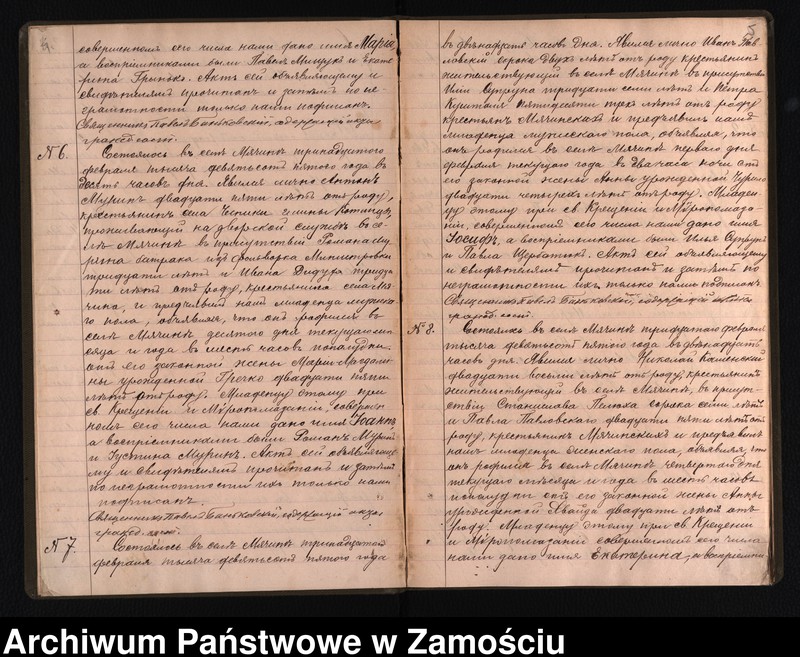 совершенномъ сего числа нами дано имя Марія
а воспріемниками были Павелъ и Екате
рина Гринько. Актъ сей объявляющему и
свидѣтелямъ прочитанъ и затѣмъ по не-
грамотности только нами подписанъ.
Священникъ Павелъ содержащій акты
гражд. сост.
№ 6. Состоялось въ селѣ Мячинѣ тринадцатаго
февраля тысяча девятьсотъ пятого года въ
десять часовъ дня. Явился лично Антонъ
Муринъ двадцати пяти лѣтъ отъ роду,
крестьянинъ села Чесники гмины Котлице,
проживающій на дворской службѣ въ се-
лѣ Мячинѣ въ присутствіи Романа Му
рина батрака изъ фольварка
тридцати лѣтъ и Ивана Дидура тридца
ти лѣтъ отъ роду, крестьянина села Мя
чина, и предъявилъ намъ младенца мужска
го пола, объявляя, что онъ родился въ
селѣ Мячинѣ десятого дня текущаго мѣ
сяца и года въ шесть часовъ пополудни
отъ его законной жены Маріи
ны урожденной Гречко двадцати пяти
лѣтъ отъ роду. Младенцу этому при
св Крещеніи и Мѵропомазаніи, соверше
номъ сего числа нами дано имя Іоаннъ
а воспріемниками были Романъ Муринъ
и Густина Муринъ. Актъ сей объявляюще
му и свидѣтелямъ прочитанъ и затѣмъ
по неграмотности ихъ только нами
подписанъ.
Священникъ Павелъ содержащій акты
гражд. сост.
№ 7. Состоялось въ селѣ Мячинѣ тринадцатаго
февраля тысяча девятьсотъ пятого года
въ двѣнадцать часовъ дня. Явился лично Иванъ Пав
ловскій сорока двухъ лѣтъ отъ роду крестьянинъ
жительствующій въ селѣ Мячинѣ въ присутствіи
Ильи Супруна тридцати семи лѣтъ и Петра
пятидесяти трехъ лѣтъ отъ роду
крестьянъ Мячинскихъ и предъявилъ намъ
младенца мужескаго пола, объявляя, что
онъ родился въ селѣ Мячинѣ перваго дня
февраля текущаго года въ два часа ночи отъ
его законной жены Анны урожденной
двадцати четырехъ лѣтъ отъ роду. Младен-
цу этому при св Крещеніи и Мѵропомаза-
ніи, совершенномъ сего числа нами дано имя
Іосифъ, а воспріемниками были Илья Супрунъ
и Павла Щербатюкъ. Актъ сей объявляющему
и свидѣтелямъ прочитанъ и затѣмъ по
неграмотности ихъ только нами подписанъ
Священникъ Павелъ содержащій акты
гражд. сост.
№ 8. Состоялось въ селѣ Мячинѣ тридцатаго февраля
тысяча девятьсотъ пятого года въ двѣнадцать
часовъ дня. Явился лично Николай Каминскій
двадцати восьми лѣтъ отъ роду, крестьянинъ
жительствующій въ селѣ Мячинѣ, въ присут-
ствіи Станислава сорока семи лѣтъ
и Павла Павловскаго двадцати пяти лѣтъ отъ
роду, крестьянъ Мячинскихъ и предъявилъ
намъ младенца женскаго пола, объявляя, что
онъ родился въ селѣ Мячинѣ четвертаго дня
текущаго мѣсяца и года въ шесть часовъ
пополудни отъ его законной жены Анны
урожденной двадцати лѣтъ отъ
роду. Младенцу этому при св Крещеніи
и Мѵропомазаніи совершенномъ сего числа
нами дано имя Екатерина, а воспріемни
Archiwum Państwowe w Zamościu